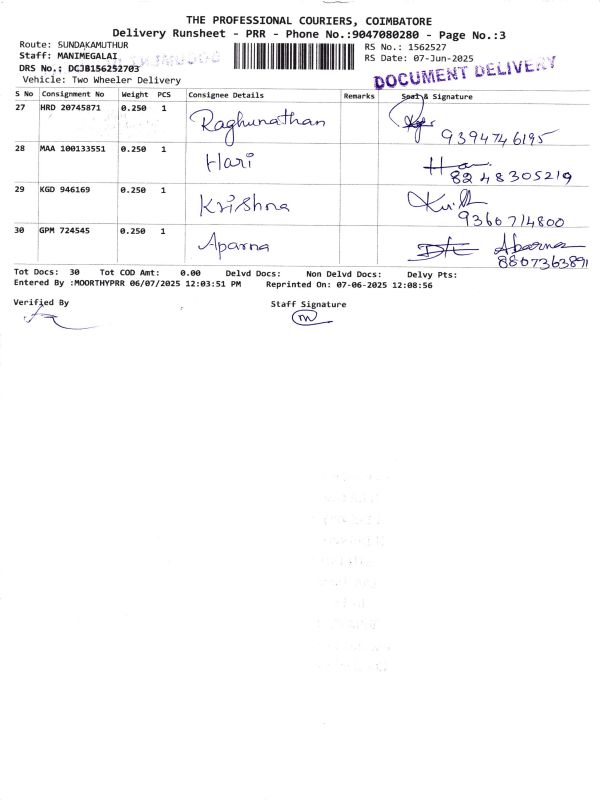 THE PROFESSIONAL COURIERS, COIMBATORE
Delivery Runsheet - PRR - Phone No.:9047080280 - Page No.:3
Route: SUNDAKAMUTHUR
RS No.: 1562527
Staff: MANIMEGALAI
RS Date: 07-Jun-2025
DRS No.: DCJB156252703
DOCUMENT DELIVERY
Vehicle: Two Wheeler Delivery
S No Consignment No Weight PCS Consignee Details Remarks Seal & Signature
27 HRD 20745871 0.250 1 Raghunathan
9394746195
28 MAA 100133551 0.250 1 Hari
8248305219
29 KGD 946169 0.250 1 Krishna
9360714800
30 GPM 724545 0.250 1 Aparna Aparna
8807363891
Tot Docs: 30 Tot COD Amt: 0.00 Delvd Docs: Non Delvd Docs: Delvy Pts:
Entered By :MOORTHYPRR 06/07/2025 12:03:51 PM Reprinted On: 07-06-2025 12:08:56
Verified By Staff Signature
m